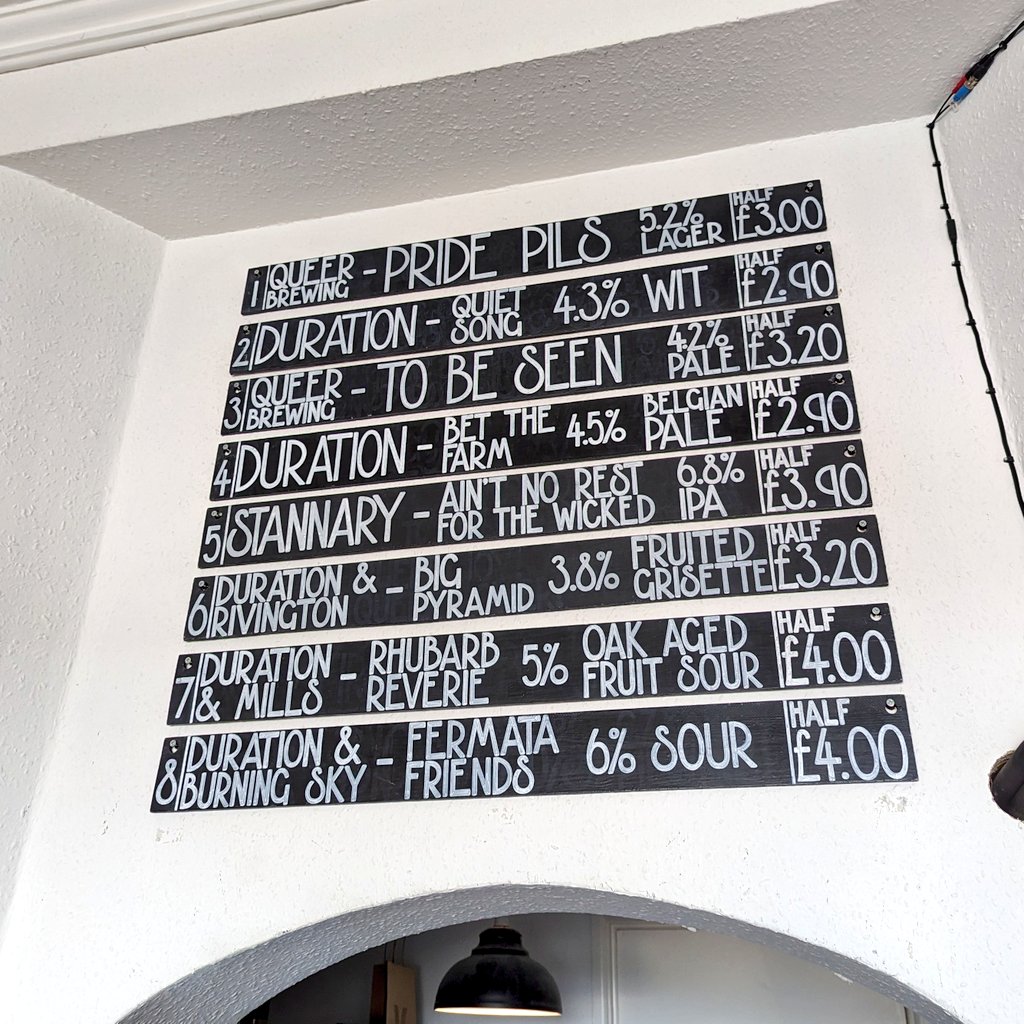 1 QUEER BREWING - PRIDE PILS 5.2% LAGER HALF £3.00
2 DURATION - QUIET SONG 4.3% WIT HALF £2.90
3 QUEER BREWING - TO BE SEEN 4.2% PALE HALF £3.20
4 DURATION - BET THE FARM 4.5% BELGIAN PALE HALF £2.90
5 STANNARY - AIN'T NO REST FOR THE WICKED 6.8% IPA HALF £3.90
6 DURATION & RIVINGTON - BIG PYRAMID 3.8% FRUITED GRISETTE HALF £3.20
7 DURATION & MILLS - RHUBARB REVERIE 5% OAK AGED FRUIT SOUR HALF £4.00
8 DURATION & BURNING SKY - FERMATA FRIENDS 6% SOUR HALF £4.00